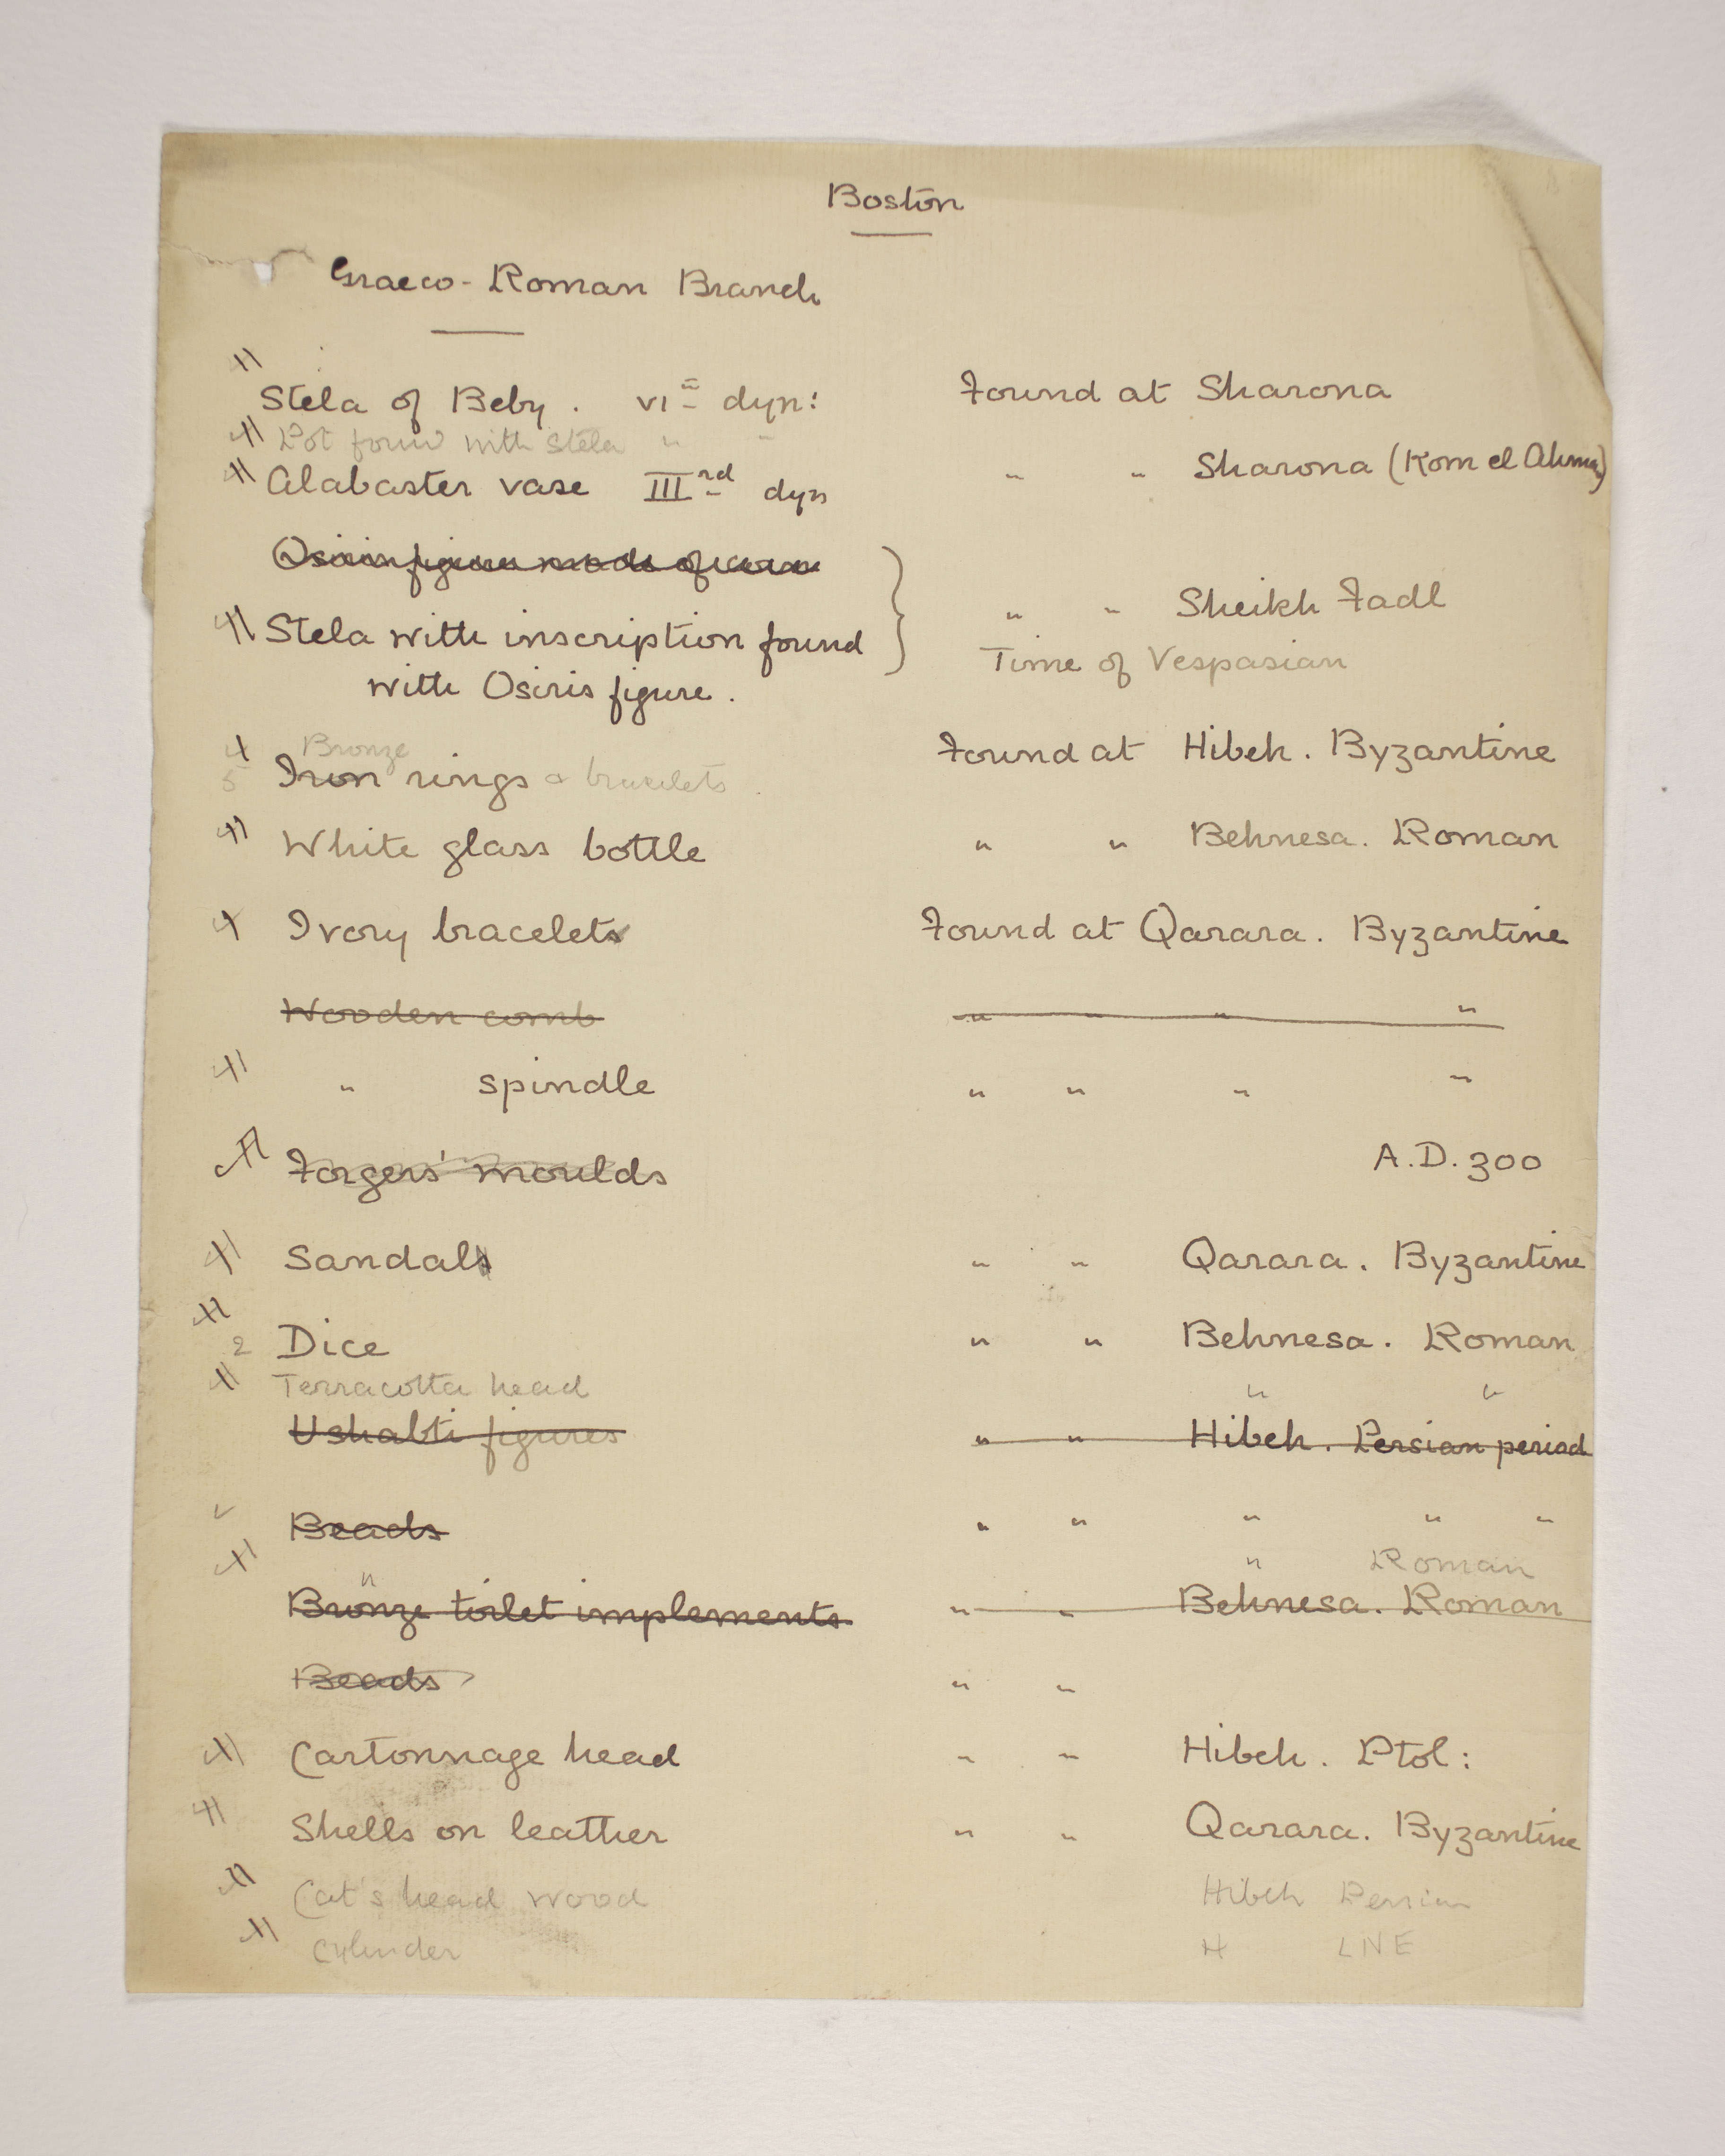 Boston
Graeco-Roman Branch
H
Stela of Beby. VI th dyn: Found at Sharona
H Pot found with Stela " "
H Alabaster vase IIIrd dyn " " Sharona (Kom el Ahmar)
Osiris figure made of corn
H Stela with inscription found " " Sheikh Fadl
with Osiris figure. Time of Vespasian
Bronze
5 Iron rings & bracelets. Found at Hibeh. Byzantine
H White glass bottle " " Behnesa. Roman
Ivory bracelets Found at Qarara. Byzantine
Wooden comb " " " "
H " spindle " " " "
H Forgers' moulds A.D. 300
H Sandals " " Qarara. Byzantine
H
2 Dice " " Behnesa. Roman
H Terracotta head " "
Ushabti figures " " Hibeh. Persian period
Beads " " " " "
H " " Roman
Bronze toilet implements " " Behnesa. Roman
Beads " "
H Cartonnage head " " Hibeh. Ptol:
H Shells on leather " " Qarara. Byzantine
H Cat's head wood Hibeh Persian
H Cylinder H LNE